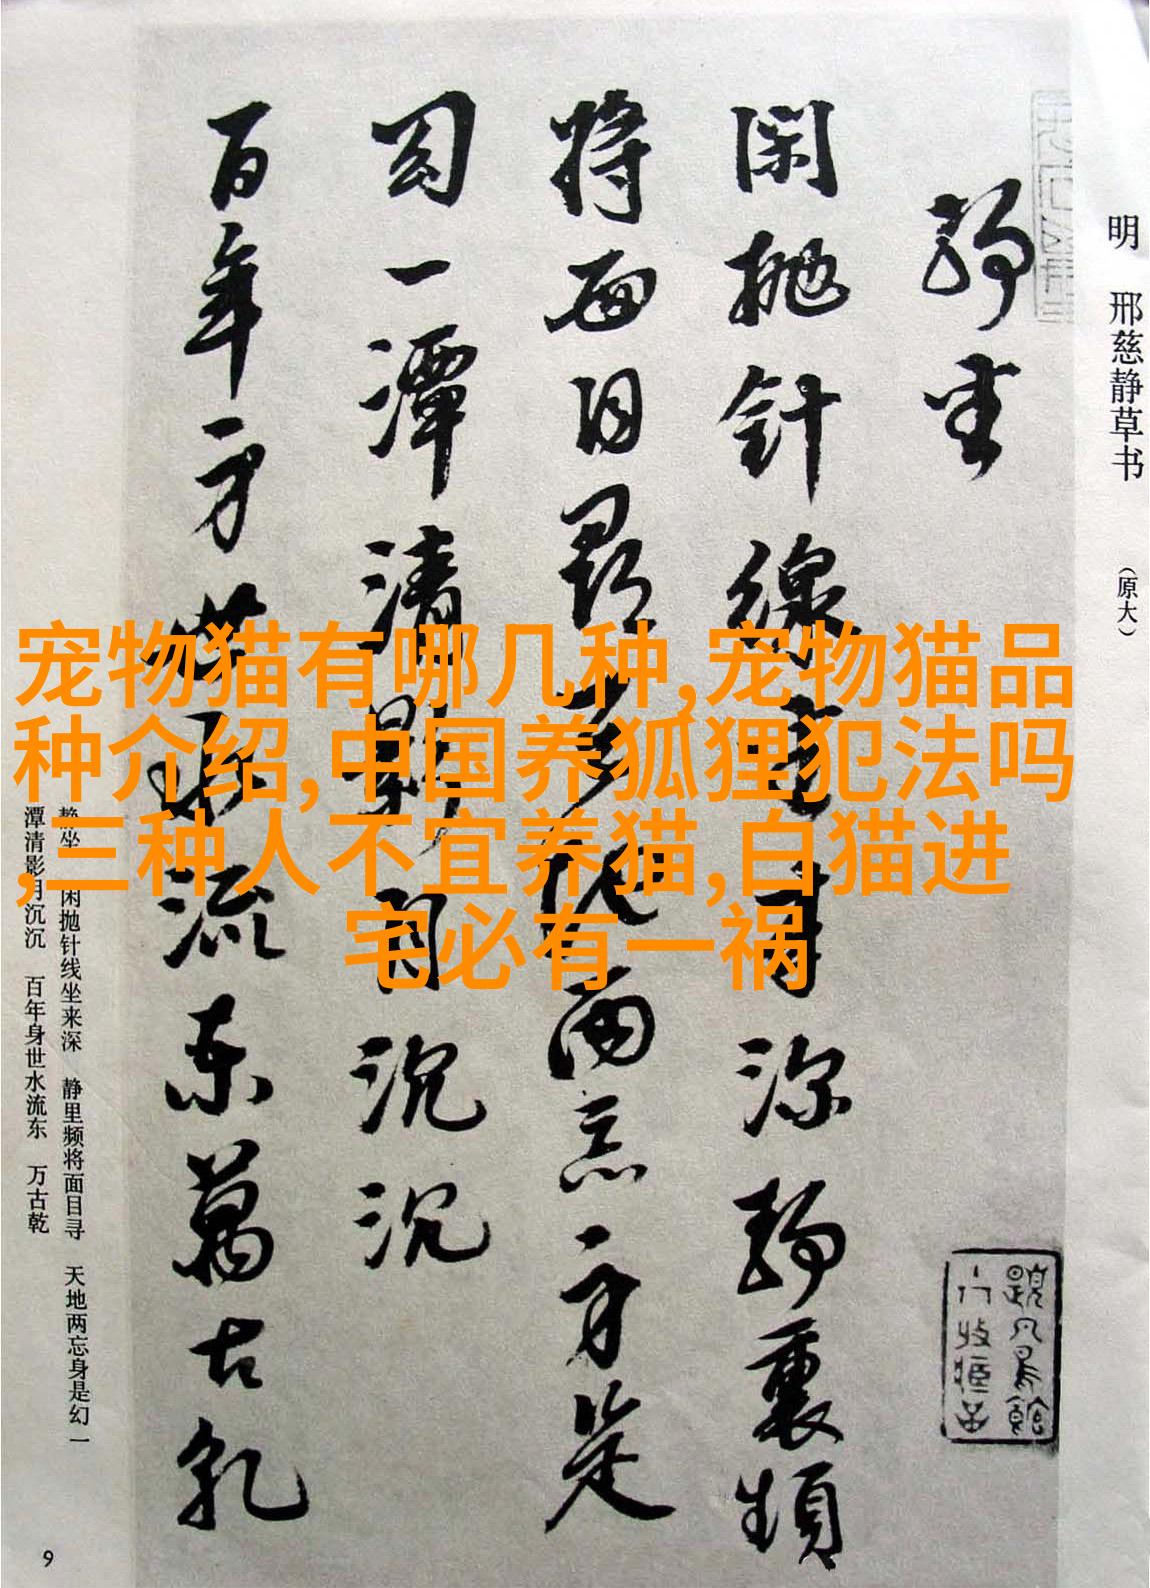 明 邢慈静草书 （原大）
静坐
闲抛针线坐来深静里频
将面目寻天地两忘身是
幻一潭清影月沉沉
百年身世水流东万古乾
宠物猫有哪几种,宠物猫品
种介绍,中国养狐狸犯法吗
,三种人不宜养猫,白猫进
宅必有一祸
静坐 闲抛针线坐来深 静里频将面目寻 天地两忘身是幻 一
潭清影月沉沉 百年身世水流东 万古乾
9